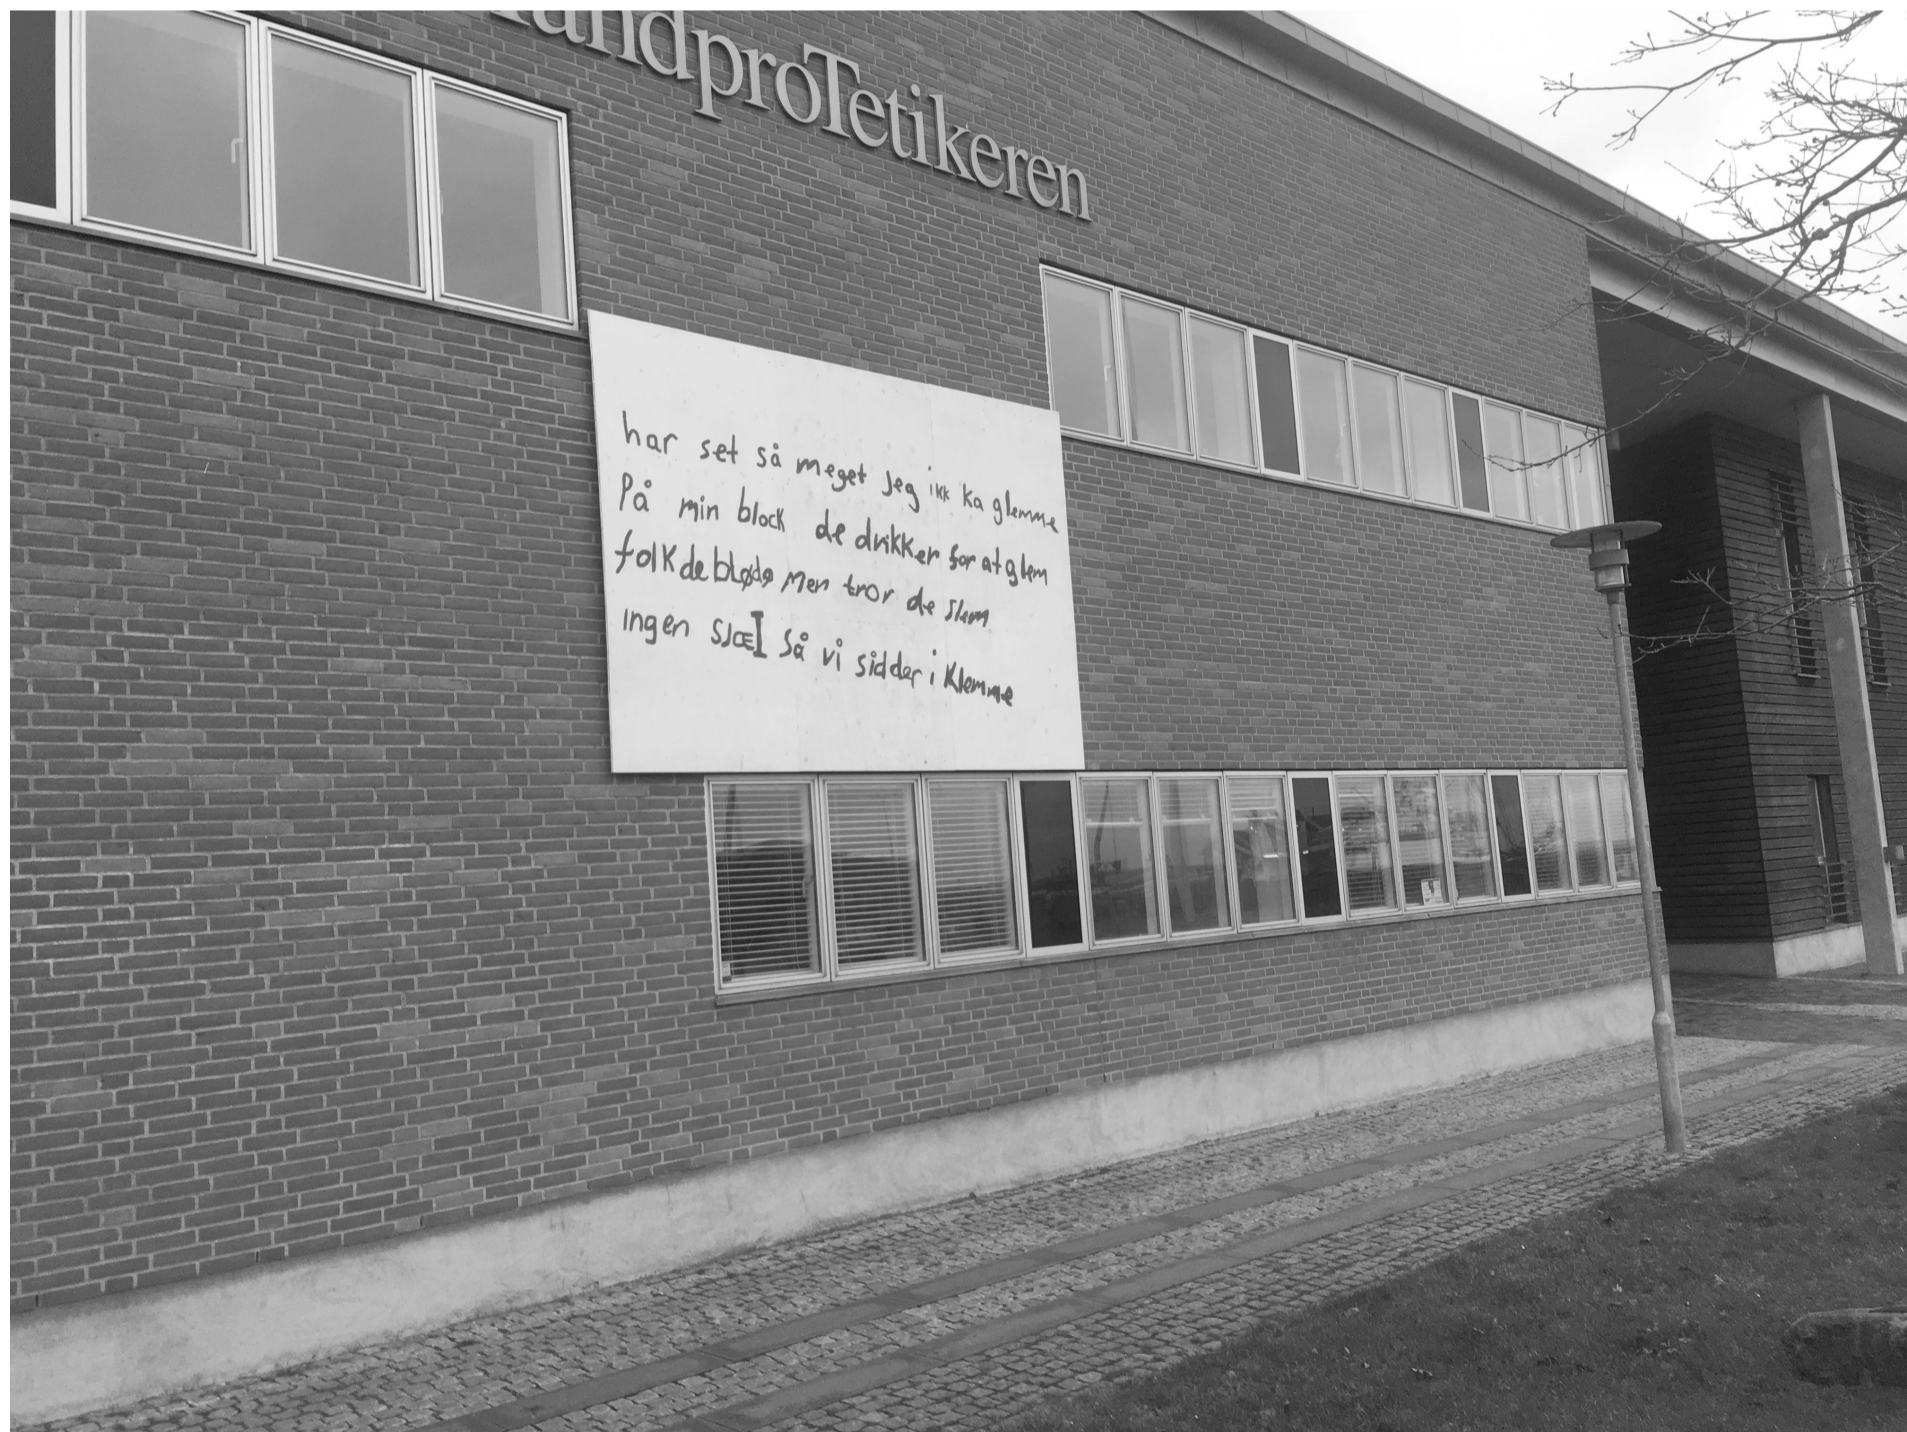 andproTetikeren
har set så meget Jeg ikk ka glemme
På min block de drikker for at glem
folk de bløde Men tror de slem
ingen sjæl så vi sidder i klemme